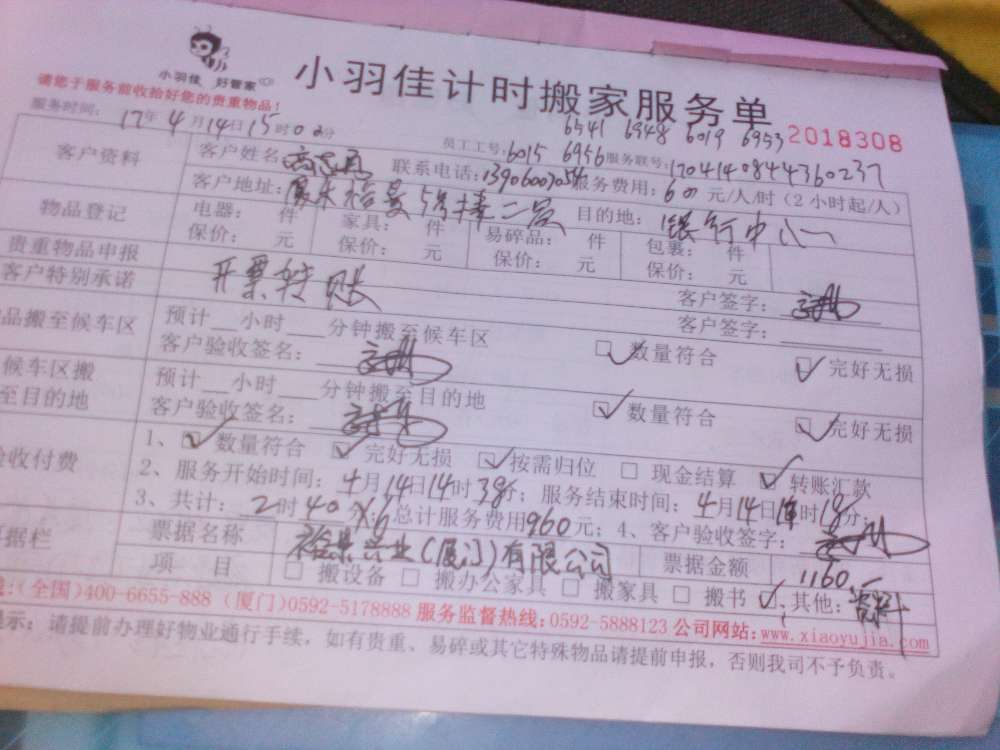 小羽佳 好管家
小羽佳计时搬家服务单
请您于服务前收拾好您的贵重物品!
6541 6948 6019 6953 2018308
服务时间: 17年4月14日15时02分 员工工号: 6015 6956 服务联号: 1704140844360237
客户资料 客户姓名: 联系电话: 服务费用: 60元/人/时(2小时起/人)
客户地址: 5号楼二层 目的地: 银行中心
物品登记 电器: 件 家具: 件 易碎品: 件 包裹: 件
保价: 元 保价: 元 保价: 元 保价: 元
贵重物品申报 客户签字:
客户特别承诺 开票转账 客户签字:
品搬至候车区 预计__小时___分钟搬至候车区
客户验收签名: 数量符合 完好无损
候车区搬 预计__小时___分钟搬至目的地
至目的地 客户验收签名: 数量符合 完好无损
验收付费 1、数量符合 完好无损 按需归位 现金结算 转账汇款
2、服务开始时间: 4月14日14时38分; 服务结束时间: 4月14日 时18分;
3、共计: 2时40 X6 总计服务费用960元; 4、客户验收签字:
票据栏 票据名称 裕景兴业(厦门)有限公司 票据金额 1160
项 目 搬设备 搬办公家具 搬家具 搬书 其他: 资料
线:(全国)400-6655-888 (厦门)0592-5178888 服务监督热线:0592-5888123 公司网站:www.xiaoyujia.com
提示: 请提前办理好物业通行手续,如有贵重、易碎或其它特殊物品请提前申报,否则我司不予负责。